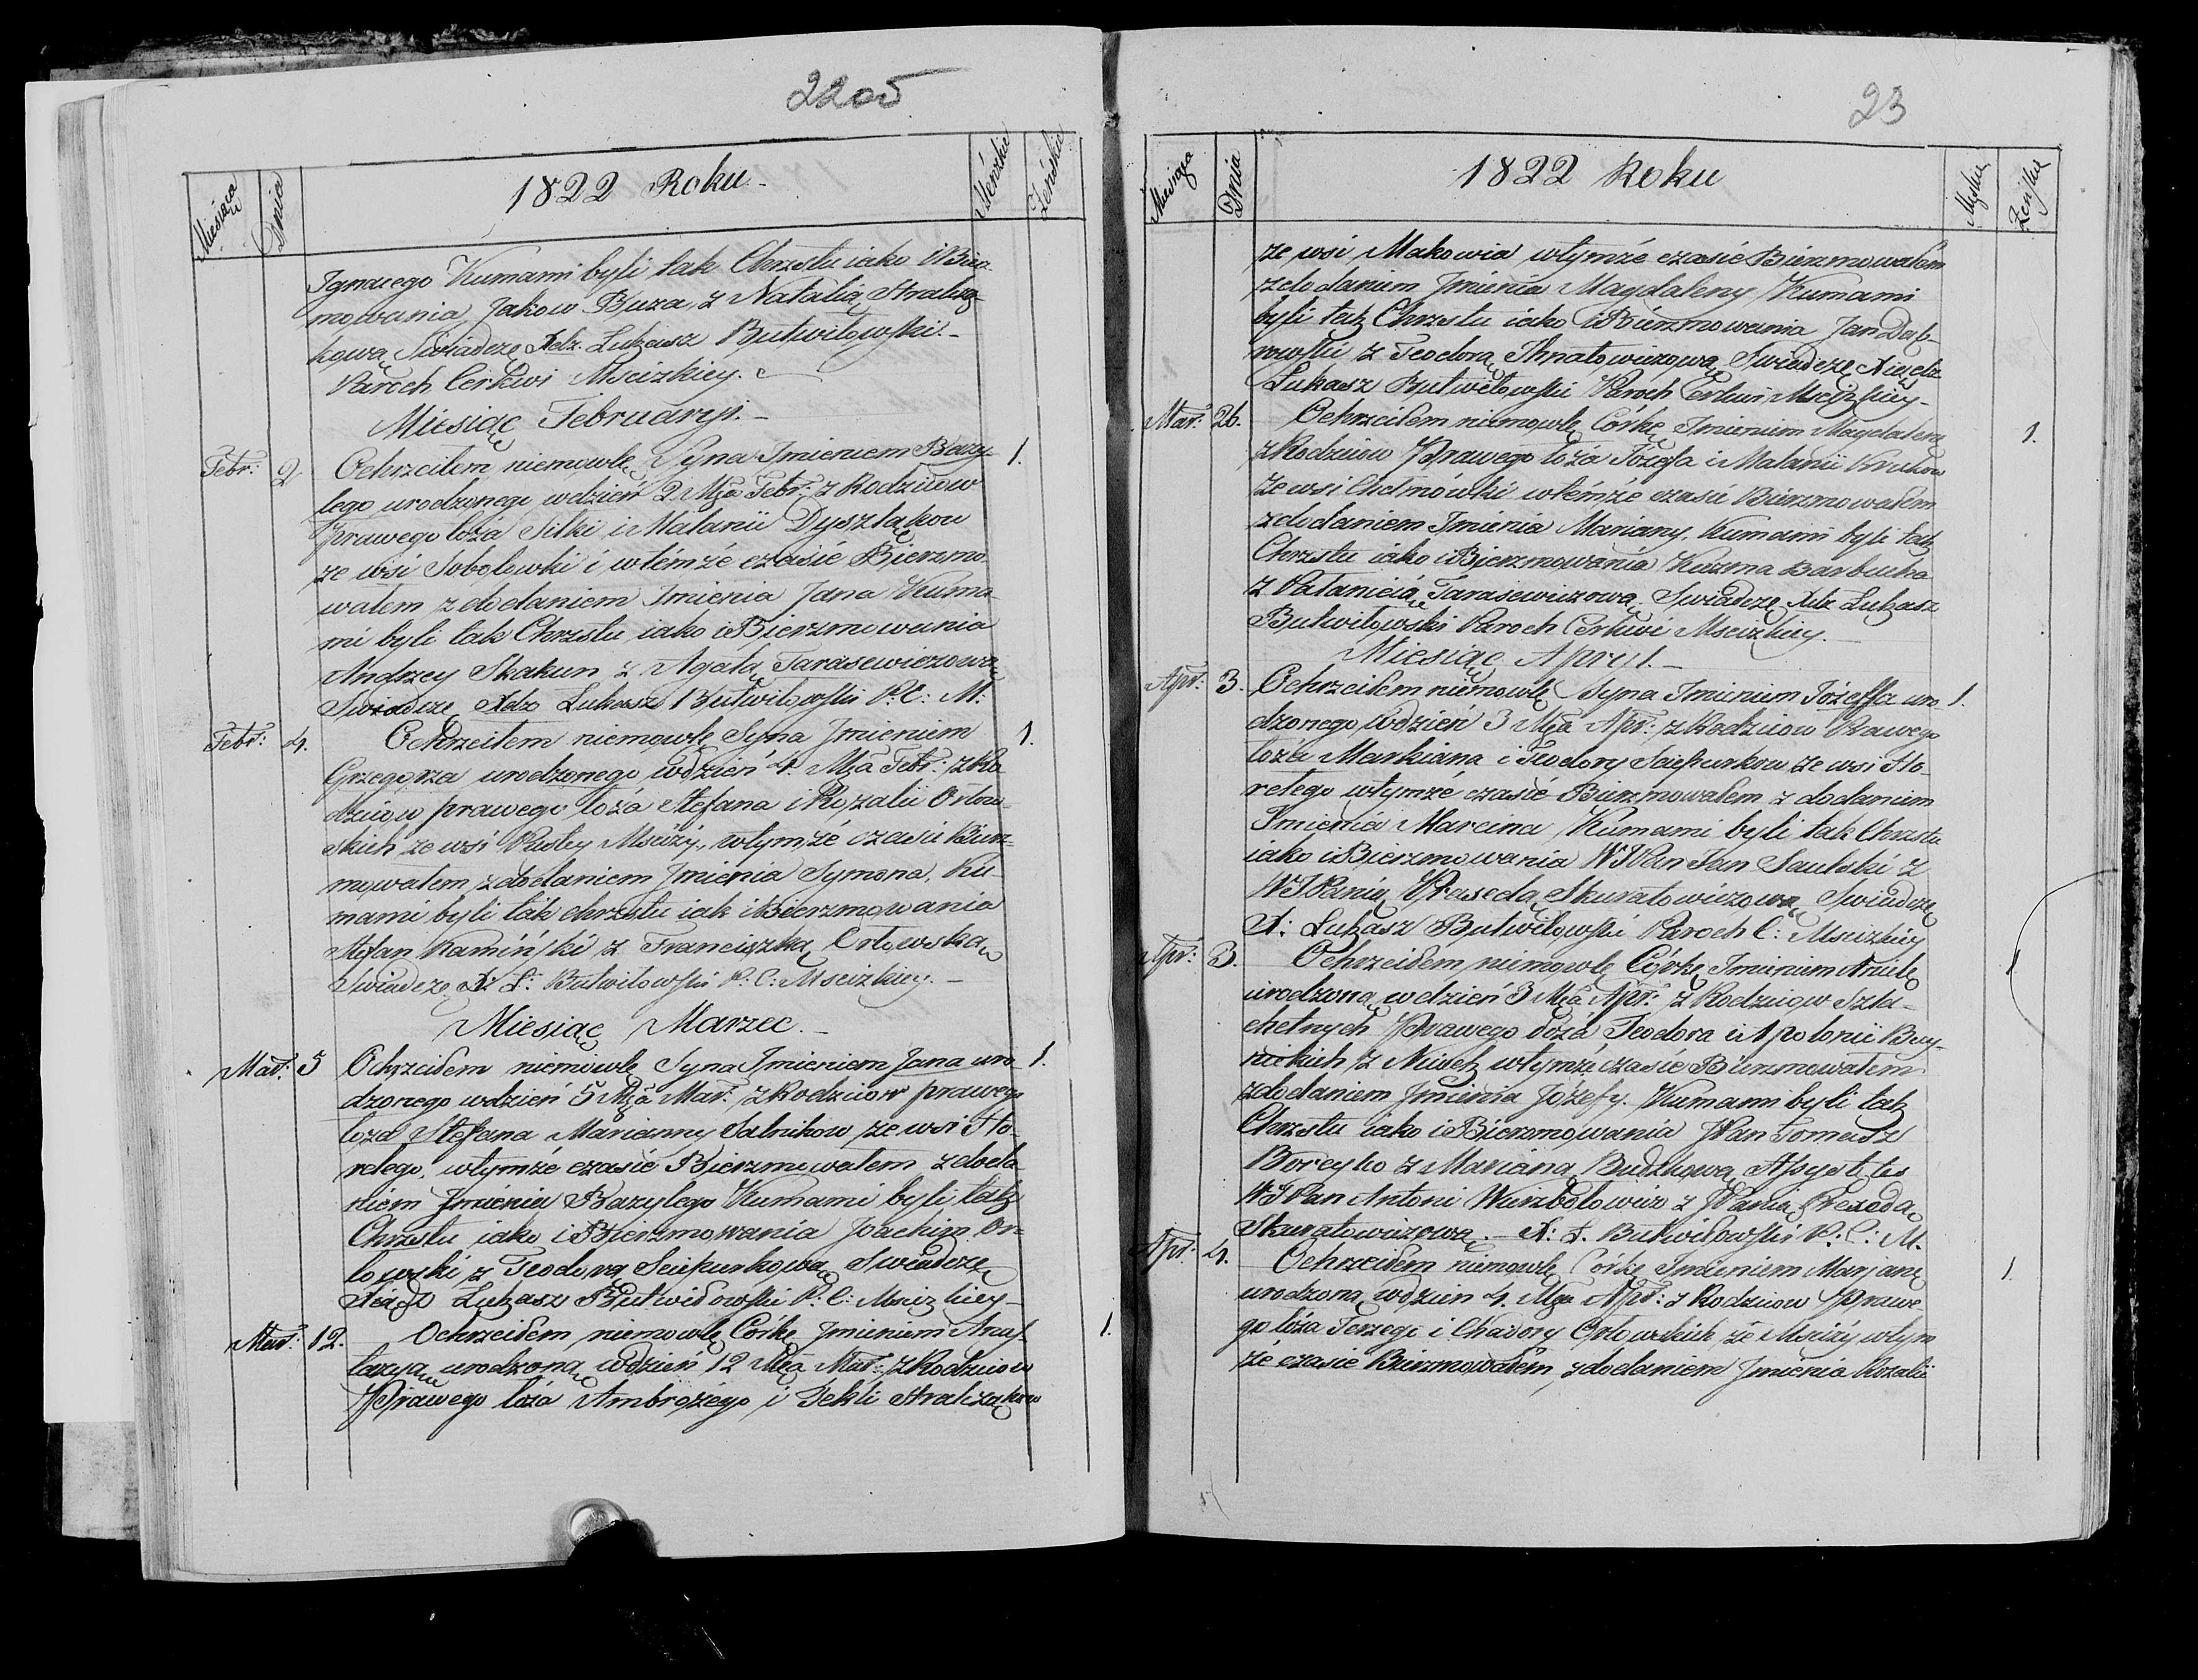 22об
Miesiąca Dnia 1822 Roku Męzkie Żeńskie
Ignacego Kumami byli tak Chrzstu iako i Bierz-
mowania Jakow Buza, z Natalią Stralcza-
kową Swiadczę Xdz. Łukasz Butwiłowski.-
Paroch Cerkwi Mscizkiey.
Miesiąc Februaryi.-
Febr: 2 Ochrzciłem niemowle Syna Imieniem Bazy- 1.
lego urodzonego wdzień 2 Mca Febr: z Rodziców
prawego łoża Silki i Małanii Dyszlakow
ze wsi Sobolowki i w témże czasie Bierzmo-
wałem z dodaniem Imienia Jana Kuma-
mi byli tak Chrzstu iako i Bierzmowania
Andrzey Skakun z Agatą Tarasewiczową
Swiadczę Xdz Łukasz Butwiłowski P: C: M:
Febr: 4. Ochrzciłem niemowle Syna Imieniem 1.
Grzegorza urodzonego wdzień 4. Mca Febr: z Ro-
dziców prawego łoża Stefana i Rozalii Orłow-
skich ze wsi Mściży, wtymże czasie Bierz-
mowałem z dodaniem Imienia Symona, Ku-
mami byli tak chrzstu iak i Bierzmowania
Stefan Kamiński z Franciszką Orłowską
Swiadczę X: Ł: Butwiłowski P: C: Mscizkiey.-
Miesiąc Marzec.-
Mar: 5 Ochrzciłem niemowle Syna Imieniem Jana uro- 1.
dzonego wdzień 5 Mca Mar: z Rodziców prawego
łoża Stefana Marianny Salnikow ze wsi Ho-
rełego, wtymże czasie Bierzmowałem z doda-
niem Imienia Bazylego Kumami byli tak
Chrzstu iako i Bierzmowania Joachim Or-
łowski z Teodorą Sciepurkową Swiadczę
Xiądz Łukasz Butwiłowski P: C: Mscizkiey-
Mar: 12. Ochrzciłem niemowle Córkę Imieniem Anas- 1.
tazyą urodzoną wdzień 12 Mca Mar: z Rodziców
Prawego łoża Ambrożego i Tekli Stralczakow
23
Miesiąca Dnia 1822 Roku Męskie Żeńskie
ze wsi Makowia wtymże czasie Bierzmowałem
z dodaniem Imienia Magdaleny Kumami
byli tak Chrzstu iako i Bierzmowania Jan Dąb-
rowski z Teodorą Ihnatowiczową Swiadczę Xiądz
Łukasz Butwiłowski Paroch Cerkwi Mscizkiey-
Mar: 26. Ochrzciłem niemowle Córkę Imieniem Magdalenę 1.
z Rodziców Prawego łoża Józefa i Małanii Krukow
ze wsi Chełmówki wtémże czasie Bierzmowałem
z dodaniem Imienia Mariany, Kumami byli tak
Chrzstu iako i Bierzmowania Kuzma Barbucha
z Pałanieią Tarasewiczową Swiadczę Xdz Łukasz
Butwiłowski Paroch Cerkwi Mscizkiey.
Miesiąc Apryl.-
Apr: 3. Ochrzciłem niemowle Syna Imieniem Józeffa uro- 1.
dzonego wdzień 3 Mca Apr: z Rodziców Prawego
łoża Markiana i Teodory Sciepurkow ze wsi Ho-
rełego wtymże czasie Bierzmowałem z dodaniem
Imienia Marcina Kumami byli tak Chrzstu
iako i Bierzmowania WJPan Jan Saulski z
WJPanią Praxedą Skuratowiczową Swiadczę
X: Łukasz Butwiłowski Paroch C: Mscizkiey
Apr: 3. Ochrzciłem niemowle Córkę Imieniem Anielę 1
urodzoną wdzień 3 Mca Apr: z Rodziców Szla-
chetnych Prawego łoża Teodora i Apolonii Buy-
nickich z wtymże czasie Bierzmowałem
z dodaniem Imienia Józefy. Kumami byli tak
Chrzstu iako i Bierzmowania JPan Tomasz
Boreyko z Marianą Budzkową Assystētes
WJPan Antoni Wierzbołowicz z JPanią Prexedą
Skuratowiczową.- X: Ł. Butwiłowski P: C: M.
Apr: 4. Ochrzciłem niemowle Córkę Imieniem Marjanę 1.
urodzoną wdzień 4. Mca Apr: z Rodziców Prawe-
go łoża Jerzego i Chwiory Orłowskich ze Mściży wtym-
że czasie Bierzmowałem, z dodaniem Imienia Rozalii